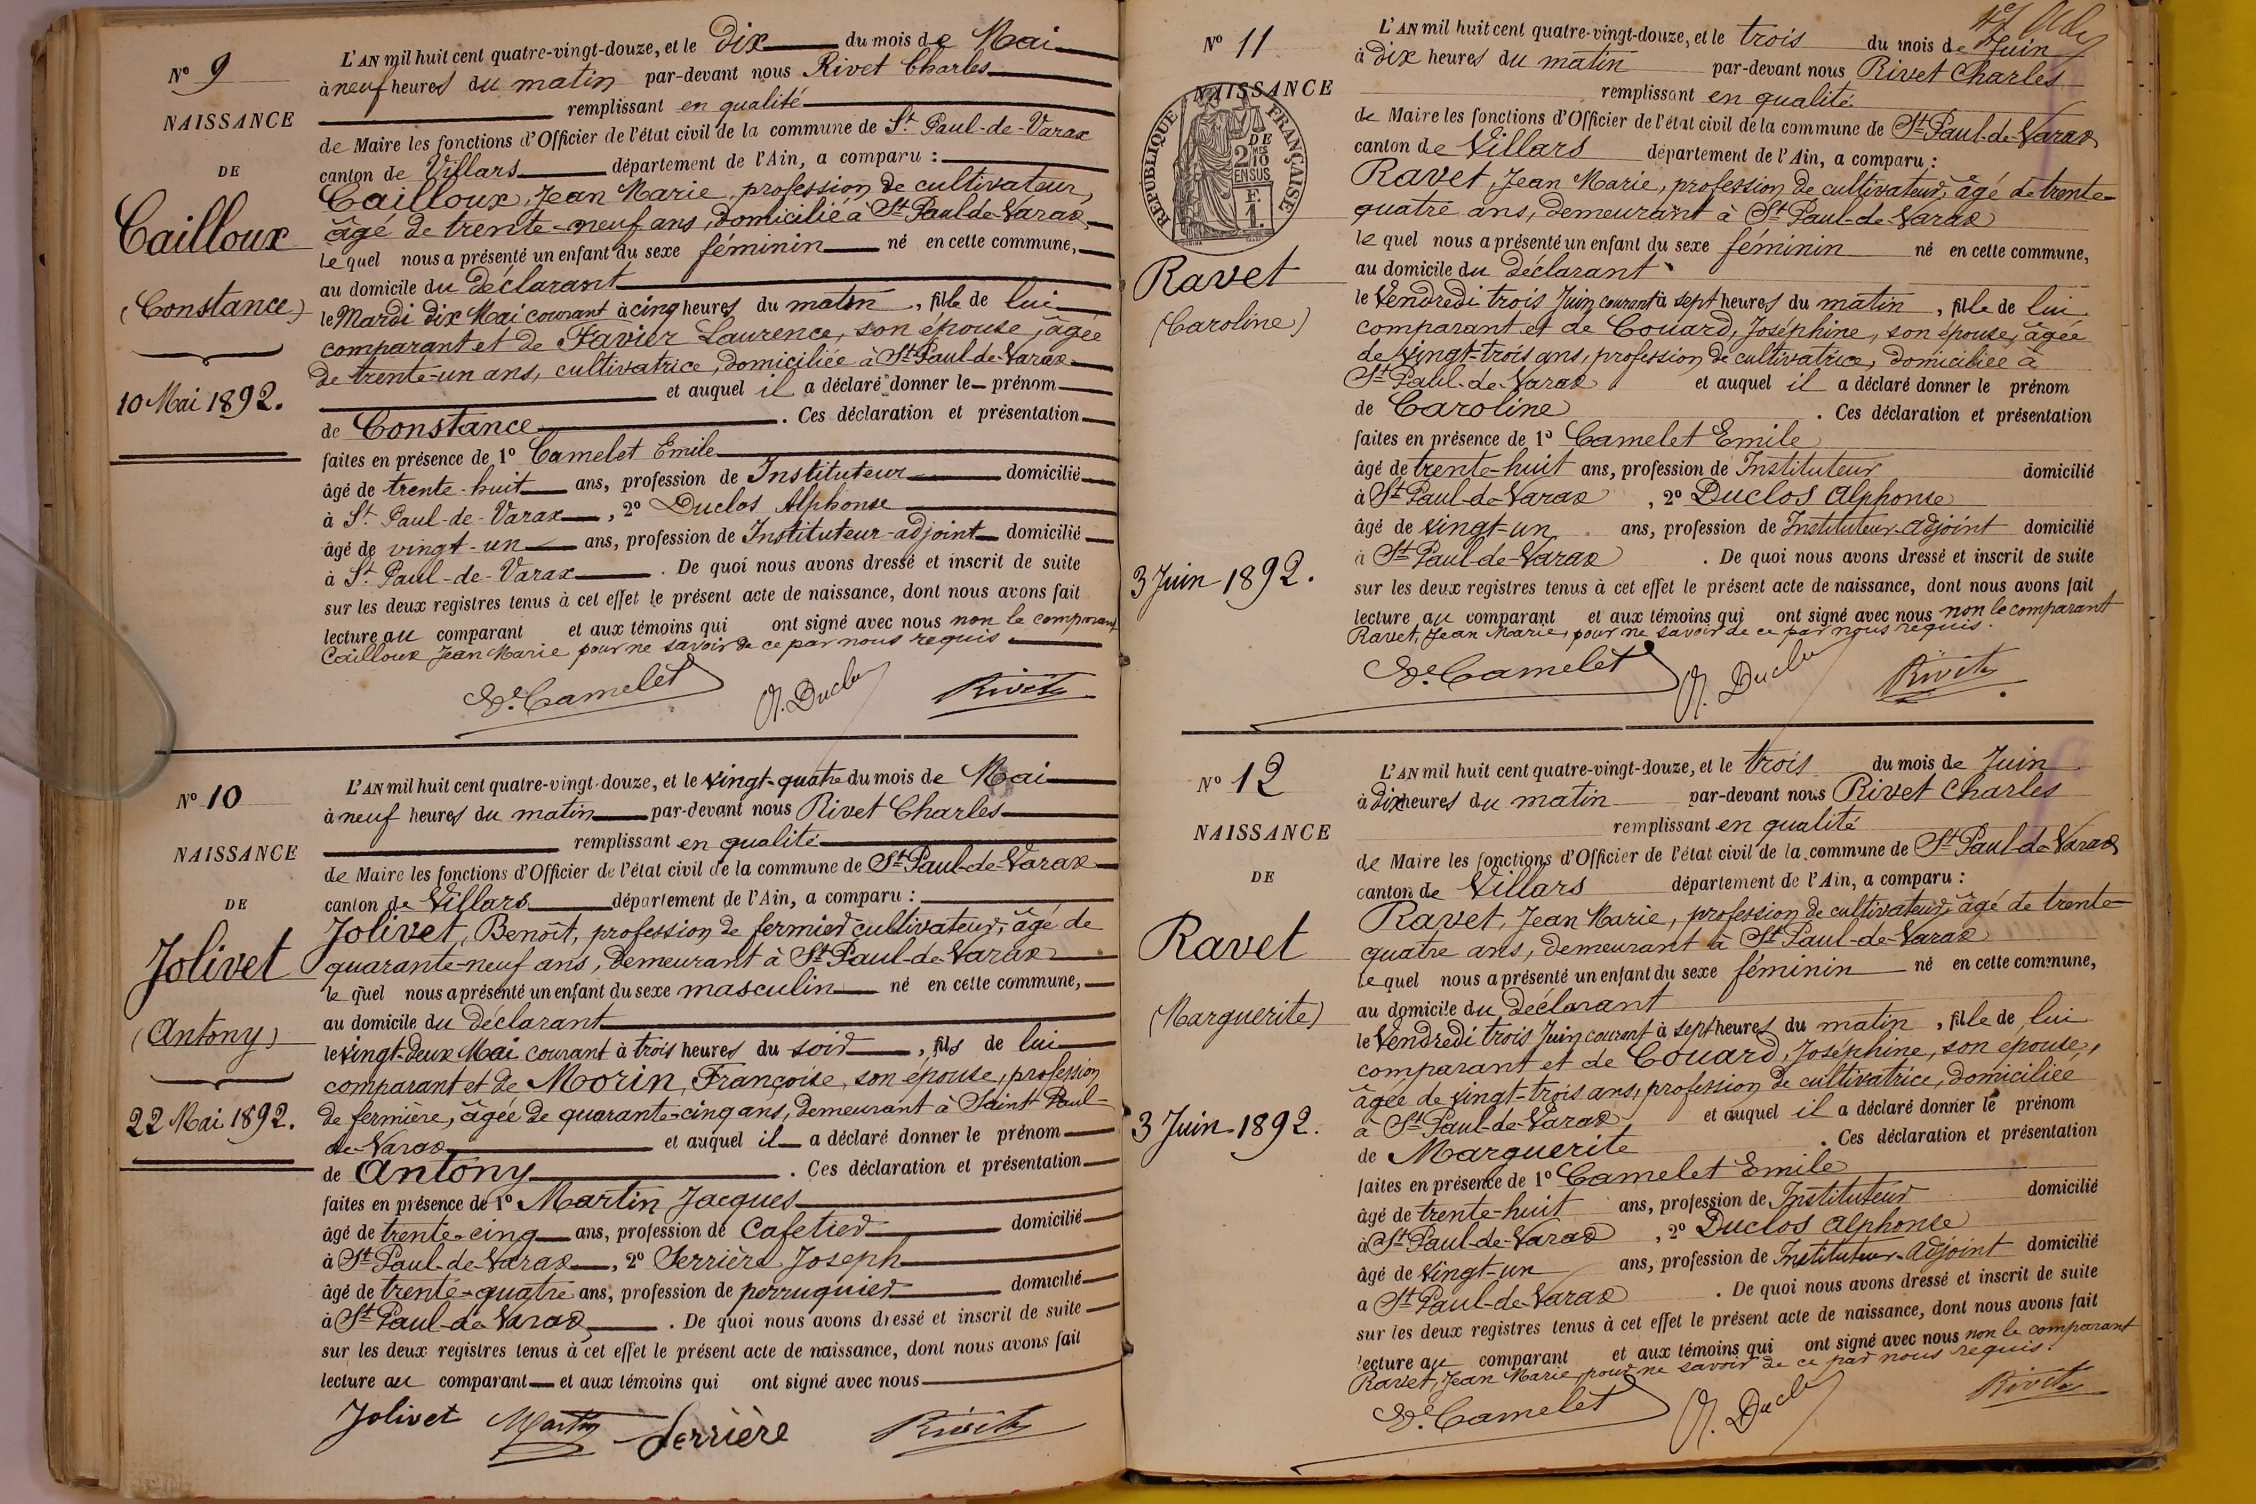 N° 9
NAISSANCE
DE
Cailloux
(Constance)
10 Mai 1892.
L'AN mil huit cent quatre-vingt-douze, et le dix du mois de Mai
à neuf heures du matin par-devant nous Rivet Charles
remplissant en qualité
de Maire les fonctions d'Officier de l'état civil de la commune de St. Paul-de-Varax
canton de Villars département de l'Ain, a comparu :
Cailloux, Jean Marie, profession de cultivateur,
âgé de trente-neuf ans, domicilié à St Paul de-Varax,
le quel nous a présenté un enfant du sexe féminin né en cette commune,
au domicile du déclarant
le Mardi dix Mai courant à cinq heures du matin, fille de lui
comparant et de Favier Laurence, son épouse, âgée
de trente-un ans, cultivatrice, domiciliée à St Paul-de-Varax
et auquel il a déclaré donner le prénom
de Constance. Ces déclaration et présentation
faites en présence de 1° Camelet Emile
âgé de trente-huit ans, profession de Instituteur domicilié
à St. Paul-de-Varax, 2° Duclos Alphonse
âgé de vingt-un ans, profession de Instituteur-adjoint domicilié
à St. Paul-de-Varax. De quoi nous avons dressé et inscrit de suite
sur les deux registres tenus à cet effet le présent acte de naissance, dont nous avons fait
lecture au comparant et aux témoins qui ont signé avec nous non le comparant
Cailloux Jean Marie pour ne savoir de ce par nous requis
E. Camelet A. Duclos Rivet
N° 10
NAISSANCE
DE
Jolivet
(Antony)
22 Mai 1892.
L'AN mil huit cent quatre-vingt-douze, et le vingt-quatre du mois de Mai
à neuf heures du matin par-devant nous Rivet Charles
remplissant en qualité
de Maire les fonctions d'Officier de l'état civil de la commune de St Paul-de-Varax
canton de Villars département de l'Ain, a comparu :
Jolivet, Benoît, profession de fermier cultivateur, âgé de
quarante-neuf ans, demeurant à St Paul-de-Varax
le quel nous a présenté un enfant du sexe masculin né en cette commune,
au domicile du déclarant
le vingt-deux Mai courant à trois heures du soir, fils de lui
comparant et de Morin, Françoise, son épouse, profession
de fermière, âgée de quarante-cinq ans, demeurant à Saint Paul-
de-Varax et auquel il a déclaré donner le prénom
de Antony. Ces déclaration et présentation
faites en présence de 1° Martin Jacques
âgé de trente-cinq ans, profession de Cafetier domicilié
à St Paul-de-Varax, 2° Serrière Joseph
âgé de trente-quatre ans, profession de perruquier domicilié
à St Paul-de-Varax. De quoi nous avons dressé et inscrit de suite
sur les deux registres tenus à cet effet le présent acte de naissance, dont nous avons fait
lecture au comparant et aux témoins qui ont signé avec nous
Jolivet Martin Serrière Rivet
N° 11
NAISSANCE
RÉPUBLIQUE FRANÇAISE
DE
2 MES 10
EN SUS
F.
1.
Ravet
(Caroline)
3 Juin 1892.
L'AN mil huit cent quatre-vingt-douze, et le trois du mois de Juin
à dix heures du matin par-devant nous Rivet Charles
remplissant en qualité
de Maire les fonctions d'Officier de l'état civil de la commune de St Paul-de-Varax
canton de Villars département de l'Ain, a comparu :
Ravet, Jean Marie, profession de cultivateur, âgé de trente-
quatre ans, demeurant à St Paul-de-Varax
le quel nous a présenté un enfant du sexe féminin né en cette commune,
au domicile du déclarant
le Vendredi trois Juin courant à sept heures du matin, fille de lui
comparant et de Couard, Joséphine, son épouse, âgée
de vingt-trois ans, profession de cultivatrice, domiciliée à
St Paul-de-Varax et auquel il a déclaré donner le prénom
de Caroline. Ces déclaration et présentation
faites en présence de 1° Camelet Emile
âgé de trente-huit ans, profession de Instituteur domicilié
à St Paul-de-Varax, 2° Duclos Alphonse
âgé de vingt-un ans, profession de Instituteur-adjoint domicilié
à St Paul-de-Varax. De quoi nous avons dressé et inscrit de suite
sur les deux registres tenus à cet effet le présent acte de naissance, dont nous avons fait
lecture au comparant et aux témoins qui ont signé avec nous non le comparant
Ravet, Jean Marie, pour ne savoir de ce par nous requis.
E. Camelet A. Duclos Rivet
N° 12
NAISSANCE
DE
Ravet
(Marguerite)
3 Juin 1892.
L'AN mil huit cent quatre-vingt-douze, et le trois du mois de Juin
à dix heures du matin par-devant nous Rivet Charles
remplissant en qualité
de Maire les fonctions d'Officier de l'état civil de la commune de St Paul-de-Varax
canton de Villars département de l'Ain, a comparu :
Ravet, Jean Marie, profession de cultivateur, âgé de trente-
quatre ans, demeurant à St Paul-de-Varax
le quel nous a présenté un enfant du sexe féminin né en cette commune,
au domicile du déclarant
le Vendredi trois Juin courant à sept heures du matin, fille de lui
comparant et de Couard, Joséphine, son épouse,
âgée de vingt-trois ans, profession de cultivatrice, domiciliée
à St Paul-de-Varax et auquel il a déclaré donner le prénom
de Marguerite. Ces déclaration et présentation
faites en présence de 1° Camelet Emile
âgé de trente-huit ans, profession de Instituteur domicilié
à St Paul-de-Varax, 2° Duclos Alphonse
âgé de vingt-un ans, profession de Instituteur-adjoint domicilié
a St Paul-de-Varax. De quoi nous avons dressé et inscrit de suite
sur les deux registres tenus à cet effet le présent acte de naissance, dont nous avons fait
lecture au comparant et aux témoins qui ont signé avec nous non le comparant
Ravet, Jean Marie, pour ne savoir de ce par nous requis.
E. Camelet A. Duclos Rivet